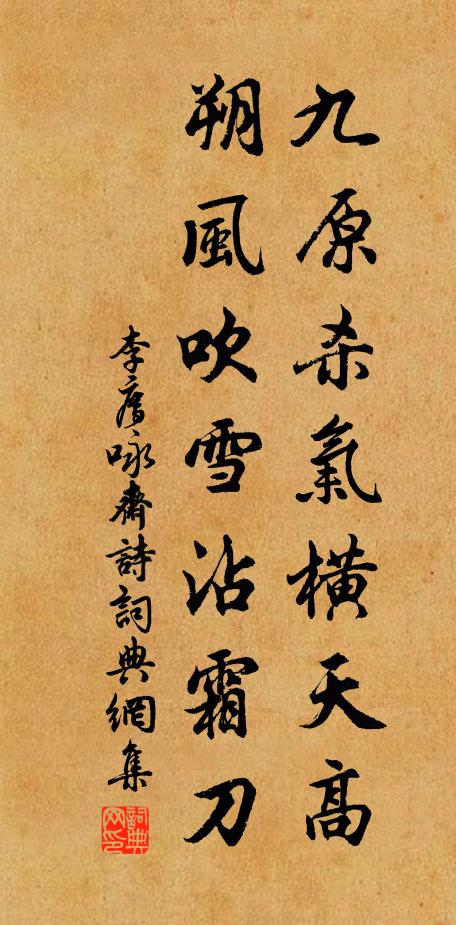 九原杀氣橫天髙
朔風吹雪沾霜刀
李咏齋詩詞典網集
詞典
网印